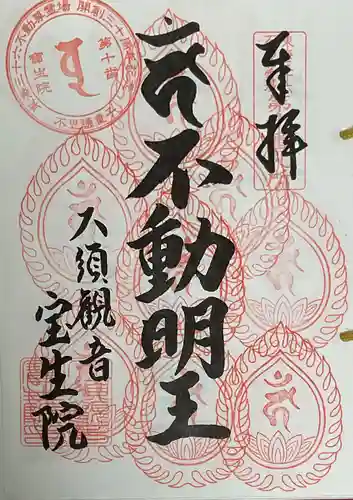 奉拝
不動明王
大須観音
宝生院
東海三十六不動尊霊場 開創三十周年
第十番
宝生院